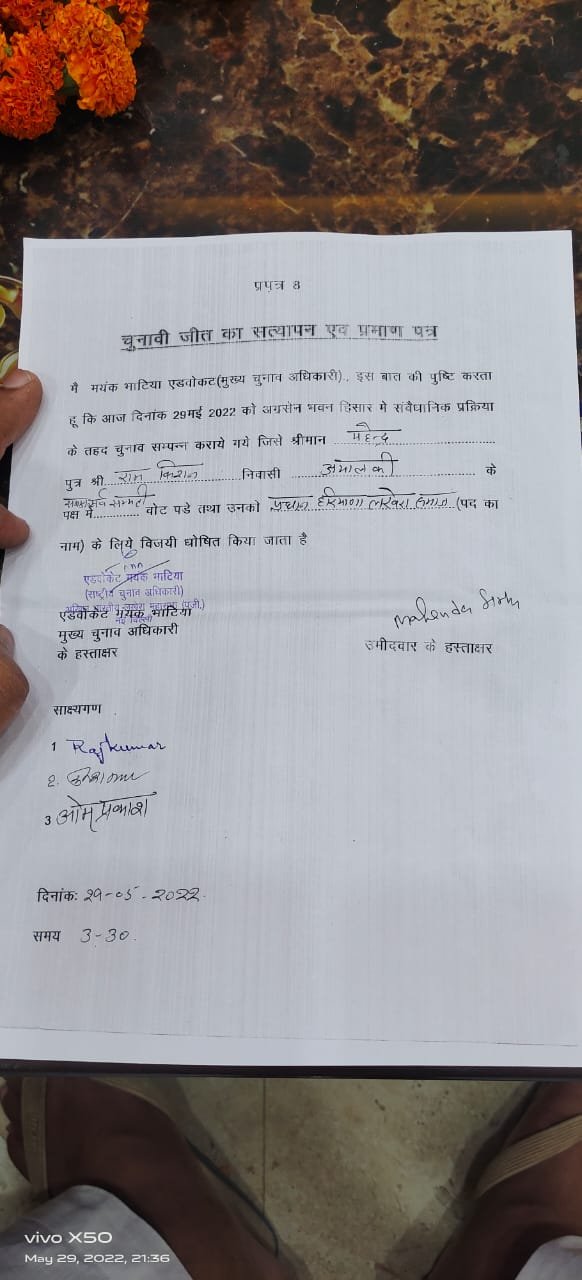 प्रपत्र 8
चुनावी जीत का सत्यापन एवं प्रमाण पत्र
मै मयंक भाटिया एडवोकट(मुख्य चुनाव अधिकारी)., इस बात की पुष्टि करता
हू कि आज दिनांक 29मई 2022 को अग्रसेन भवन हिसार मे संवैधानिक प्रक्रिया
के तहद चुनाव सम्पन्न कराये गये जिसे श्रीमान महेन्द्र
पुत्र श्री राम किशन निवासी के
सर्व सम्मती
पक्ष में वोट पडे तथा उनको प्रधान हरियाणा लखेरा समाज (पद का
नाम) के लिये विजयी घोषित किया जाता है
एडवोकेट मयंक भाटिया
(राष्ट्रीय चुनाव अधिकारी)
अखिल भारतीय लखेरा महासभा (पंजी.)
नई दिल्ली
एडवोकेट मयंक भाटिया
मुख्य चुनाव अधिकारी
के हस्ताक्षर
Mahender
उमीदवार के हस्ताक्षर
साक्ष्यगण
1 Rajkumar
2.
3 ओमप्रकाश
दिनांक: 29-05-2022
समय 3-30
vivo X50
May 29, 2022, 21:36